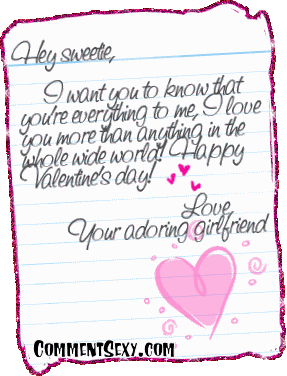 Hey sweetie,
I want you to know that
you're everything to me, I love
you more than anything in the
whole wide world! Happy
Valentine's day!
Love
Your adoring girlfriend
CommentSexy.com